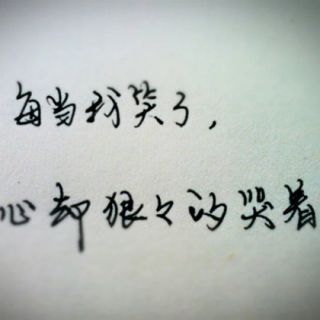 每当我笑了，
心却狠々的哭着